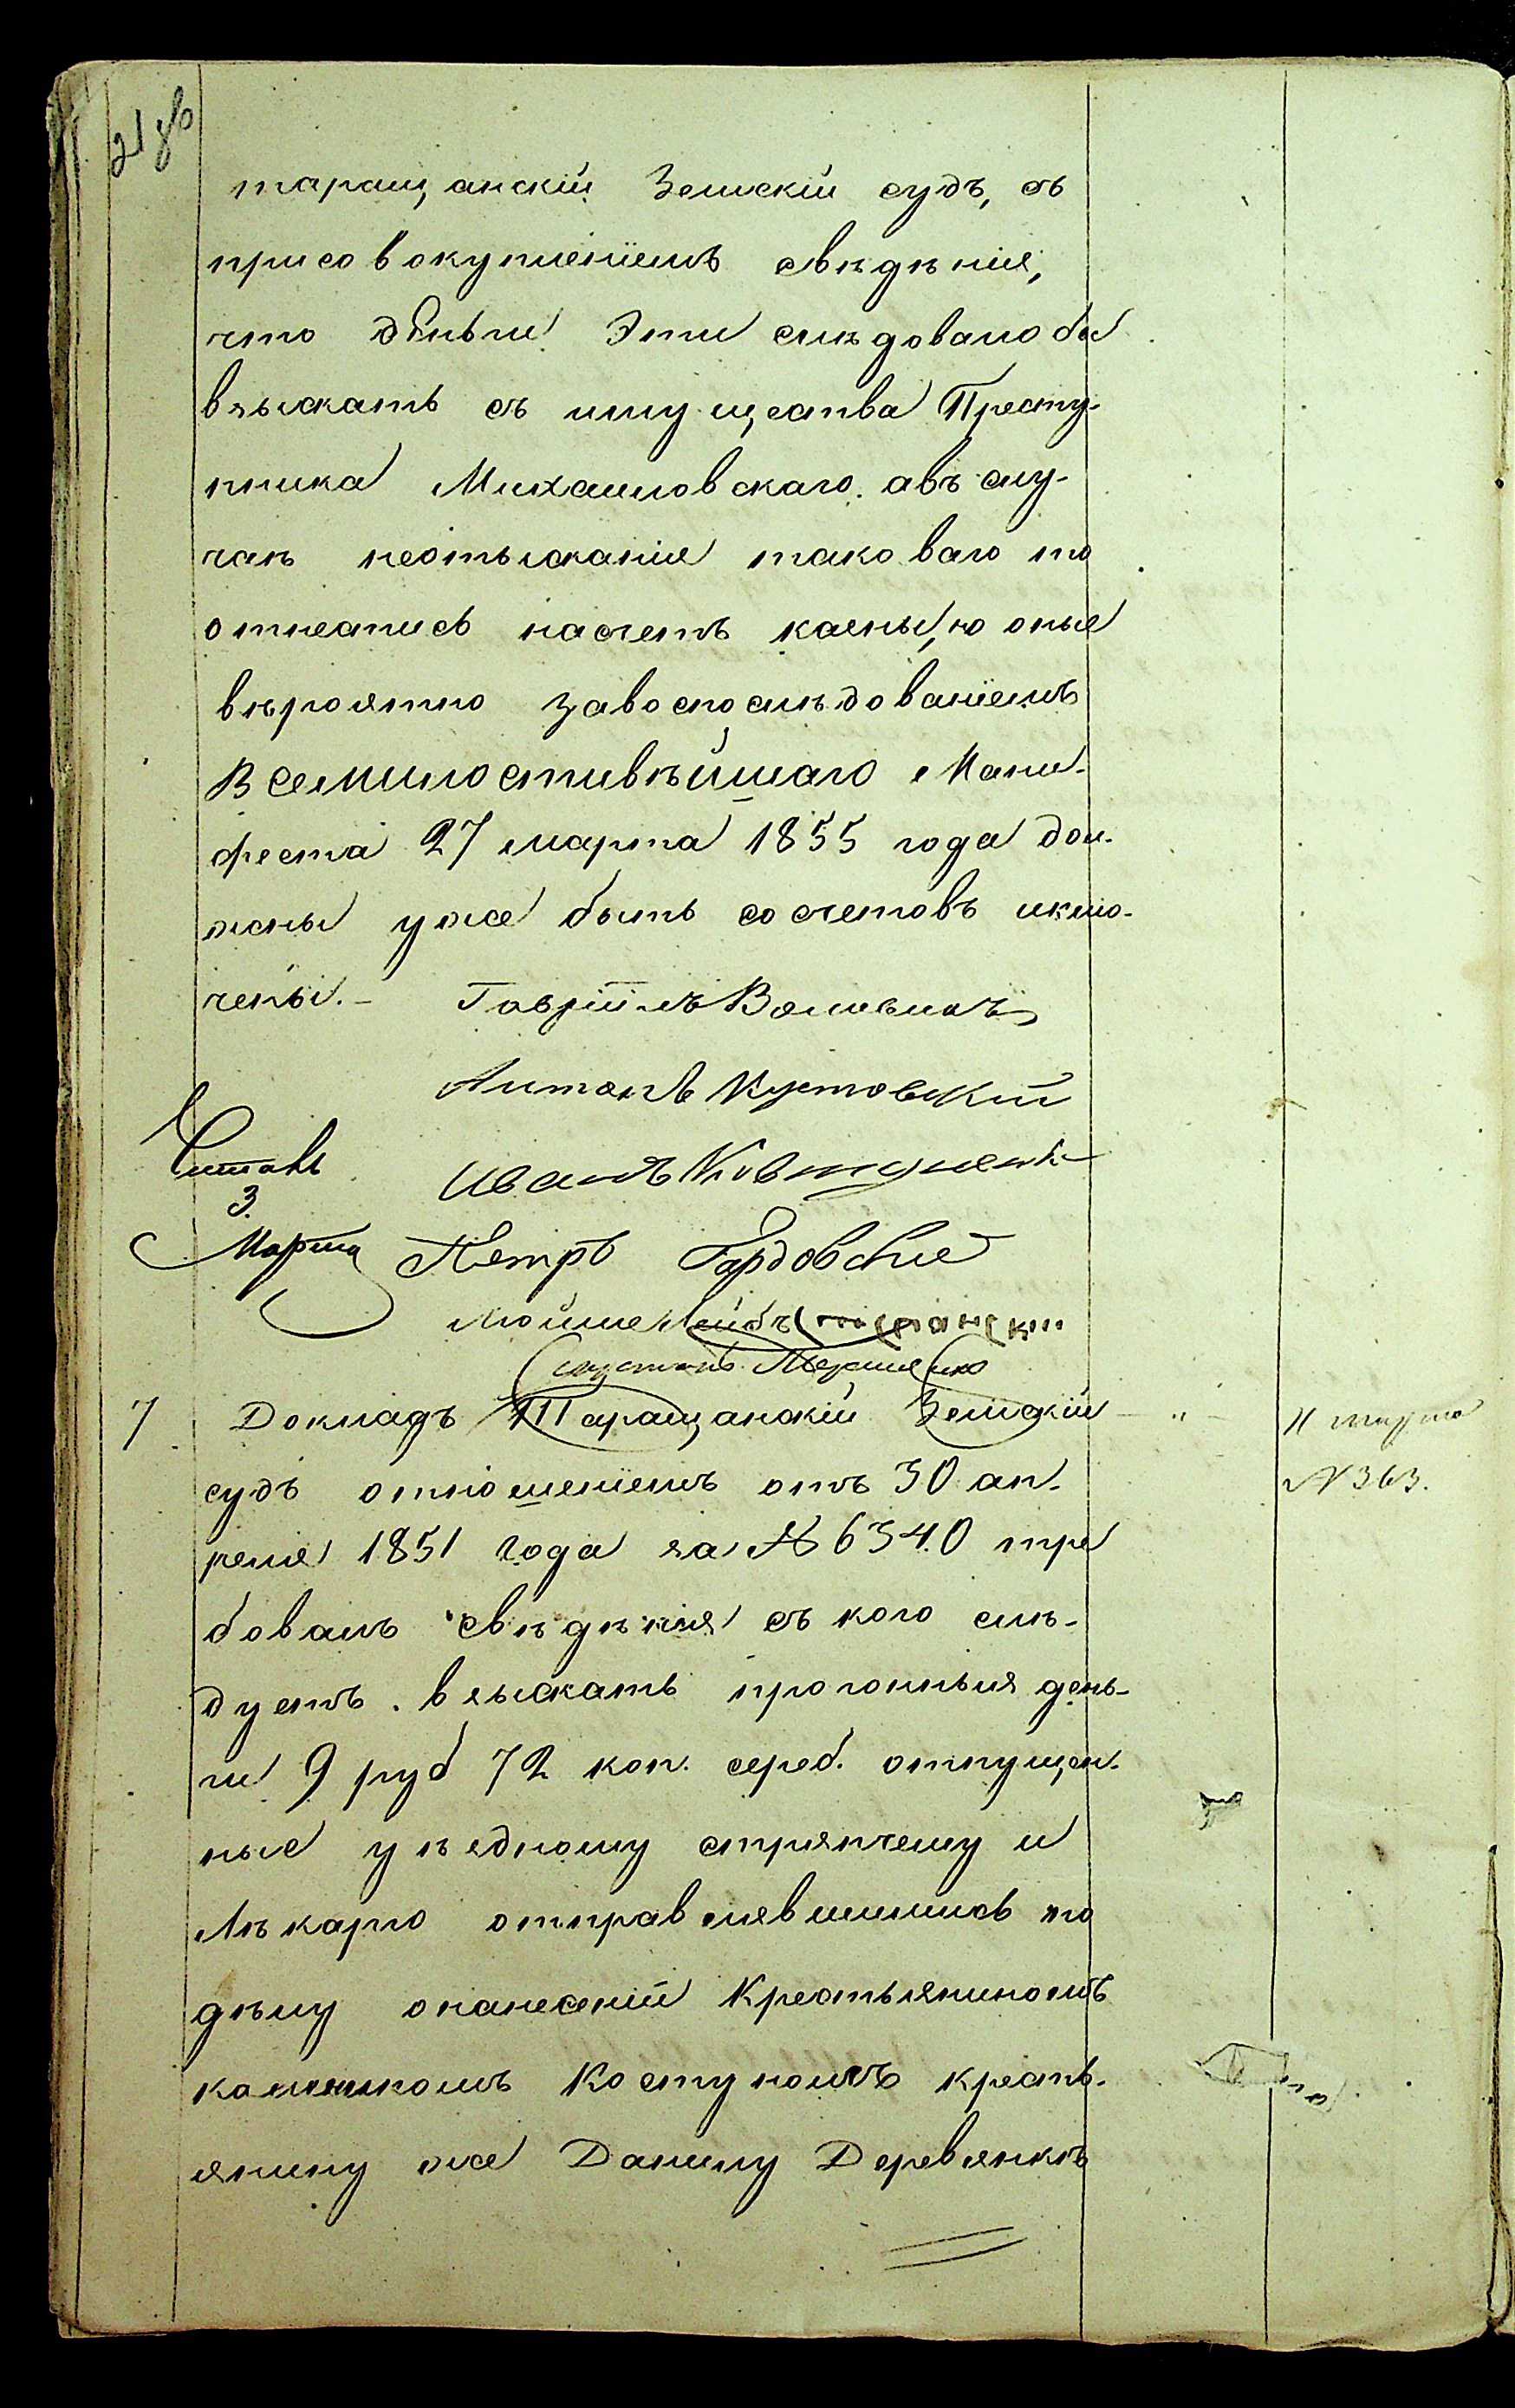 21 об
таращанскій Земскій судъ, съ
присовокупленіемъ свѣдѣнія,
что деньги Эти слѣдовало бы
взыскать съ имущества Престу-
пника Михаиловскаго. авъ слу-
чаѣ неотысканія таковаго то
отнеапись насчетъ казны, но оные
вѣроятно завоспослѣдованіемъ
Всемилостивѣйшаго Мани-
феста 27 марта 1855 года дол-
жны уже быть сосчетовъ исклю-
чены. -
Гавріилъ
Антонъ Кустовскій
Иванъ
Читалъ
3.
Марта
Петръ Гордовскій
Мойше Лейбъ
7 Докладъ Таращанскій Земскій - " -
11 марта
№ 363.
судъ отношеніемъ отъ 30 ап-
реля 1851 года за № 6340 тре
бовалъ свѣдѣнія съ кого слѣ-
дуетъ. взыскать прогонныя день-
ги 9 руб 72 коп. сереб. отпущен-
ные уѣздному стряпчему и
Лѣкарю отправлявшимся по
дѣлу онанесеніи Крестьяниномъ
Костуномъ кресть-
янину же Данилу Деревянкѣ